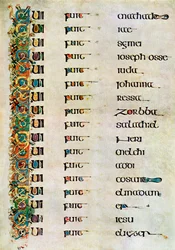 Qui fuit
Qui fuit
Qui fuit semei
Qui fuit ioseph osse
Qui fuit iuda
Qui fuit iohanna
Qui fuit ressa
Qui fuit
Qui fuit salathiel
Qui fuit neri
Qui fuit melchi
Qui fuit addi
Qui fuit cosam
Qui fuit elmadam
Qui fuit er
Qui fuit iesu
Qui fuit eliezer